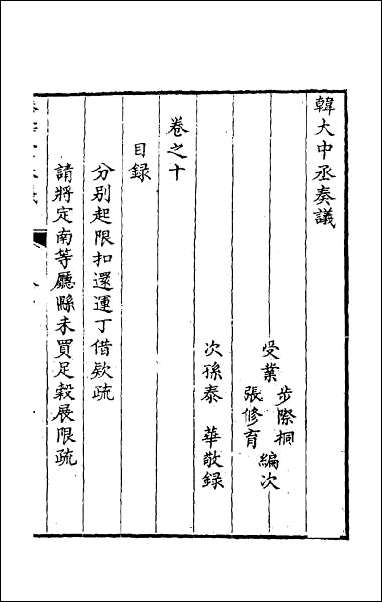 韓大中丞奏議
受業 步際桐 張修育 編次
次孫泰 華敬録
卷之十
目録
分別起限扣還運丁借欵疏
請將定南等廳縣未買足穀展限疏